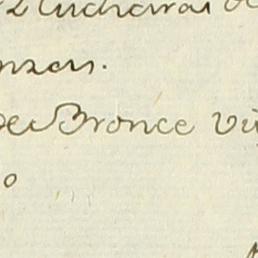 2 Cucharas de
nzas.
de Bronce vi
o